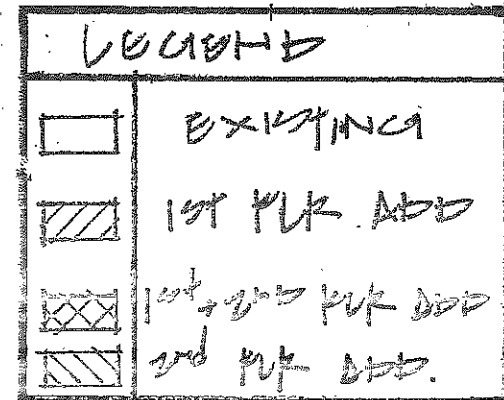 LEGEND
EXISTING
1ST FLR. ADD
1st + 2ND FLR ADD
2nd FLR ADD.